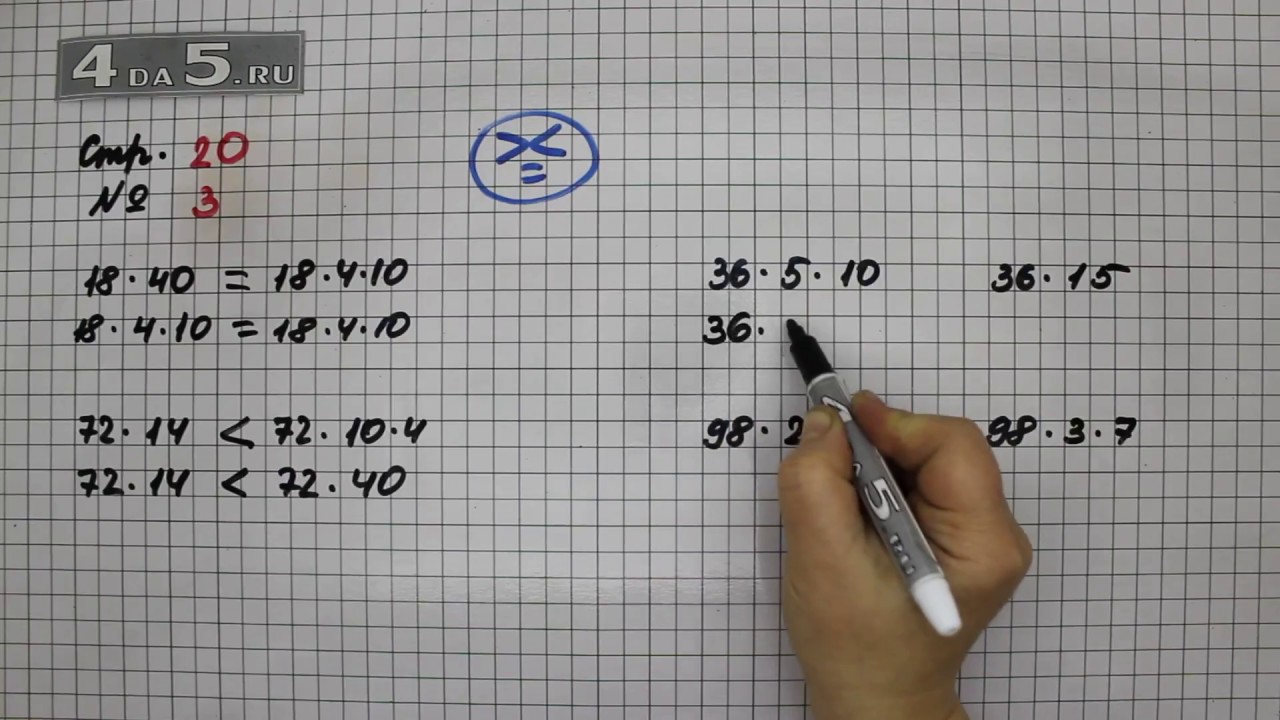 4DA5.RU
Стр. 20
№ 3
> <
=
18 · 40 = 18 · 4 · 10
18 · 4 · 10 = 18 · 4 · 10
72 · 14 < 72 · 10 · 4
72 · 14 < 72 · 40
36 · 5 · 10 36 · 15
36 ·
98 · 2 98 · 3 · 7